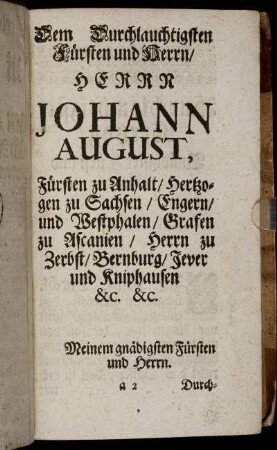 Dem Durchlauchtigsten
Fürsten und Herrn/
HERRN
JOHANN
AUGUST,
Fürsten zu Anhalt/ Hertzo-
gen zu Sachsen / Engern/
und Westphalen / Grafen
zu Ascanien / Herrn zu
Zerbst/ Bernburg/ Jever
und Kniphausen
&c. &c.
Meinem gnädigsten Fürsten
und Herrn.
a 2 Durch-